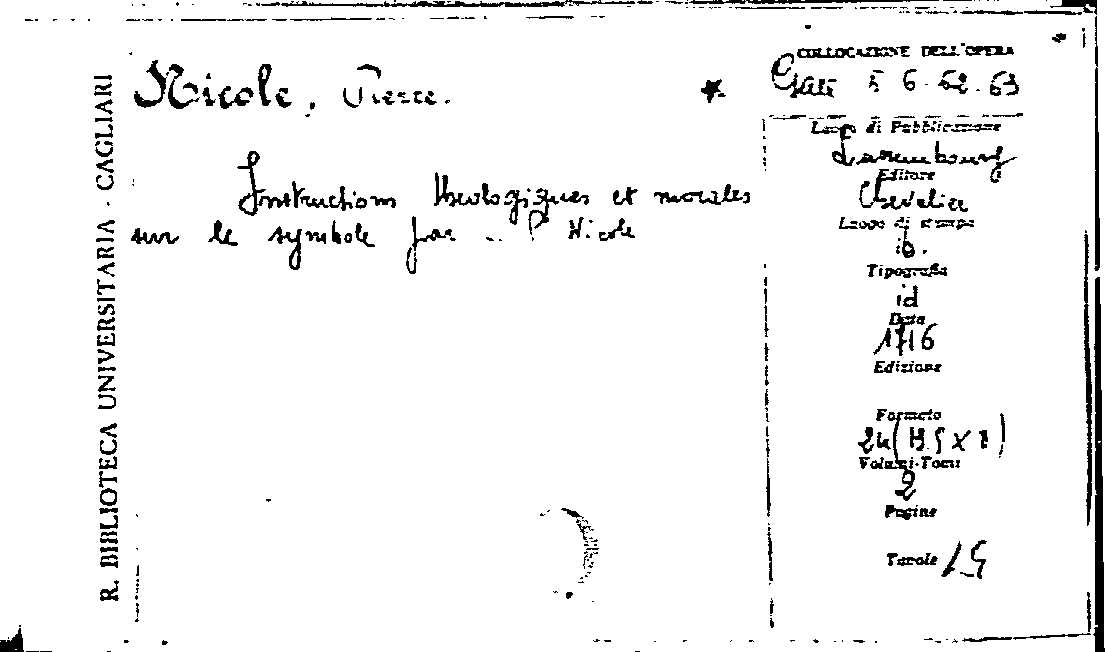 R. BIBLIOTECA UNIVERSITARIA - CAGLIARI
Nicole, Pierre.
Instructions theologiques et morales
sur le symbole par .. P Nicole
COLLOCAZIONE DELL'OPERA
5 6. 62. 63
Luogo di Pubblicazione
Luxembourg
Editore
Chevalier
Luogo di stampa
ib.
Tipografia
id
Data
1716
Edizione
Formato
24 (13.5 X 7)
Volumi-Tomi
2
Pagine
Tavole